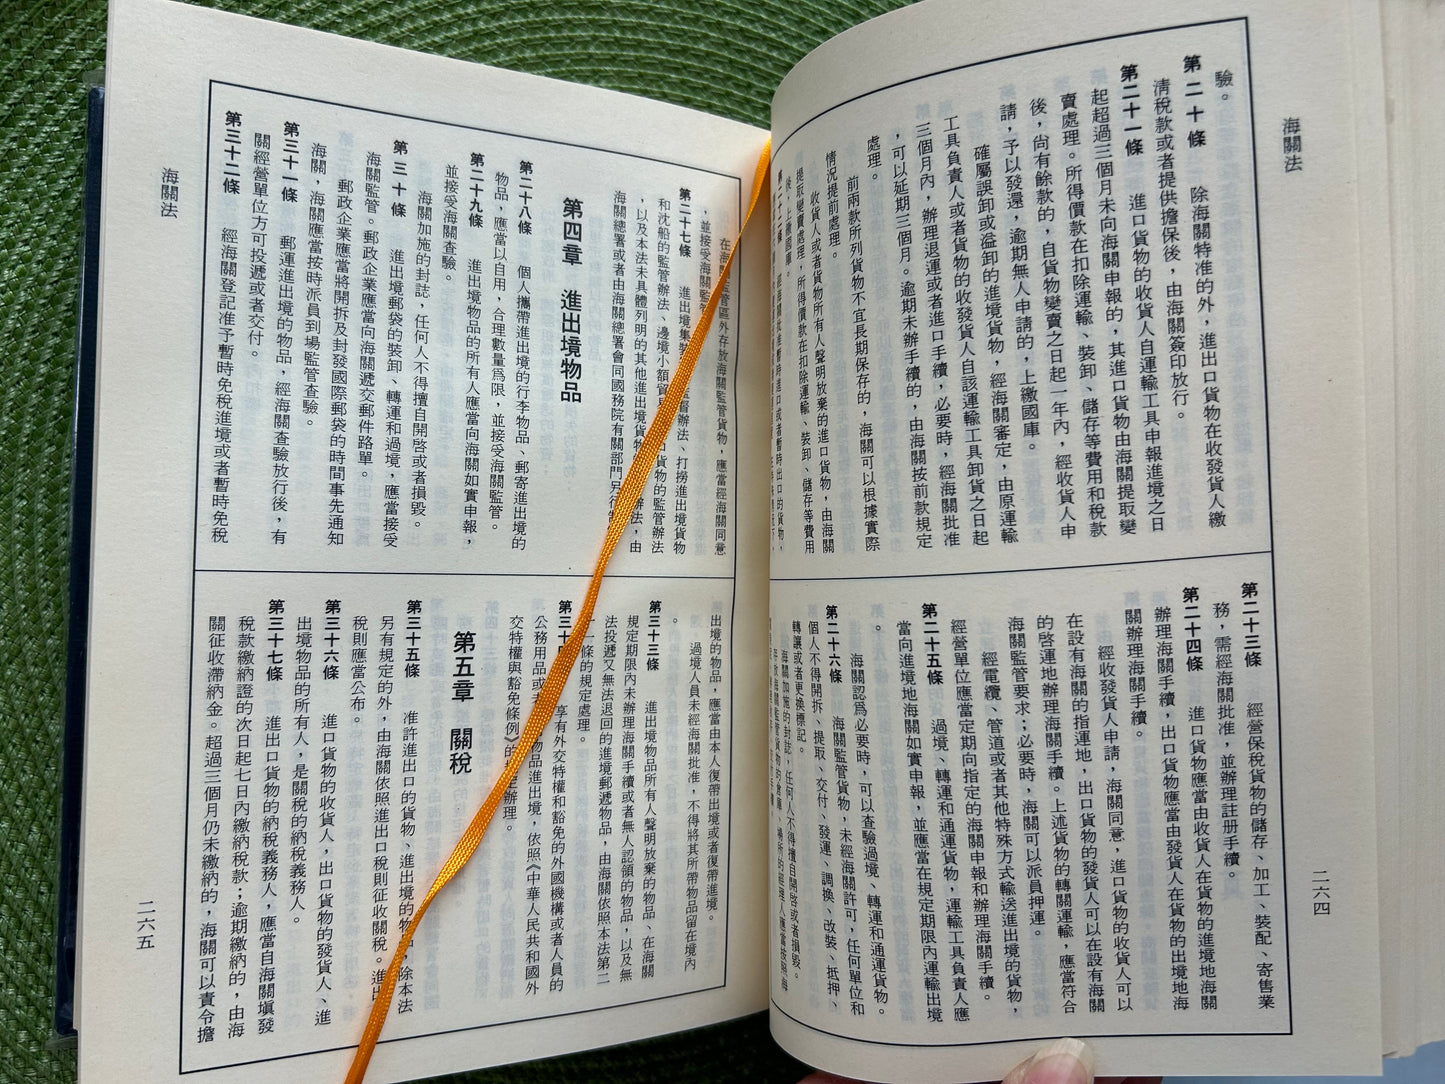 海關法
驗。
第二十條　除海關特准的外，進出口貨物在收發貨人繳
清稅款或者提供擔保後，由海關簽印放行。
第二十一條　進口貨物的收貨人自運輸工具申報進境之日
起超過三個月未向海關申報的，其進口貨物由海關提取變
賣處理。所得價款在扣除運輸、裝卸、儲存等費用和稅款
後，尚有餘款的，自貨物變賣之日起一年內，經收貨人申
請，予以發還，逾期無人申請的，上繳國庫。
確屬誤卸或溢卸的進境貨物，經海關審定，由原運輸
工具負責人或者貨物的收發貨人自該運輸工具卸貨之日起
三個月內，辦理退運或者進口手續，必要時，經海關批准
，可以延期三個月。逾期未辦手續的，由海關按前款規定
處理。
前兩款所列貨物不宜長期保存的，海關可以根據實際
情況提前處理。
收貨人或者貨物所有人聲明放棄的進口貨物，由海關
提取變賣處理，所得價款在扣除運輸、裝卸、儲存等費用
後，上繳國庫。
第二十二條　經海關批准暫時進口或者暫時出口的貨物，
第二十三條　經營保稅貨物的儲存、加工、裝配、寄售業
務，需經海關批准，並辦理註冊手續。
第二十四條　進口貨物應當由收貨人在貨物的進境地海關
辦理海關手續，出口貨物應當由發貨人在貨物的出境地海
關辦理海關手續。
經收發貨人申請，海關同意，進口貨物的收貨人可以
在設有海關的指運地，出口貨物的發貨人可以在設有海關
的啓運地辦理海關手續。上述貨物的轉關運輸，應當符合
海關監管要求；必要時，海關可以派員押運。
經電纜、管道或者其他特殊方式輸送進出境的貨物，
經營單位應當定期向指定的海關申報和辦理海關手續。
第二十五條　過境、轉運和通運貨物，運輸工具負責人應
當向進境地海關如實申報，並應當在規定期限內運輸出境
。
海關認爲必要時，可以查驗過境、轉運和通運貨物。
第二十六條　海關監管貨物，未經海關許可，任何單位和
個人不得開拆、提取、交付、發運、調換、改裝、抵押、
轉讓或者更換標記。
海關加施的封誌，任何人不得擅自開啓或者損毀。
存放海關監管貨物的倉庫、場所的經理人應當按照海
二六四
在海關監管區外存放海關監管貨物，應當經海關同意
，並接受海關監管
第二十七條　進出境集裝 監督辦法、打撈進出境貨物
和沈船的監管辦法、邊境小額貿 口貨物的監管辦法
，以及本法未具體列明的其他進出境貨物 辦法，由
海關總署或者由海關總署會同國務院有關部門另行
第四章　進出境物品
第二十八條　個人攜帶進出境的行李物品、郵寄進出境的
物品，應當以自用，合理數量爲限，並接受海關監管。
第二十九條　進出境物品的所有人應當向海關如實申報，
並接受海關查驗。
海關加施的封誌，任何人不得擅自開啓或者損毀。
第三十條　進出境郵袋的裝卸、轉運和過境，應當接受
海關監管。郵政企業應當向海關遞交郵件路單。
郵政企業應當將開拆及封發國際郵袋的時間事先通知
海關，海關應當按時派員到場監管查驗。
第三十一條　郵運進出境的物品，經海關查驗放行後，有
關經營單位方可投遞或者交付。
第三十二條　經海關登記准予暫時免稅進境或者暫時免稅
出境的物品，應當由本人復帶出境或者復帶進境。
過境人員未經海關批准，不得將其所帶物品留在境內
。
第三十三條　進出境物品所有人聲明放棄的物品、在海關
規定期限內未辦理海關手續或者無人認領的物品，以及無
法投遞又無法退回的進境郵遞物品，由海關依照本法第二
十一條的規定處理。
第三十 享有外交特權和豁免的外國機構或者人員的
公務用品或 物品進出境，依照《中華人民共和國外
交特權與豁免條例》的 定辦理。
第五章　關稅
第三十五條　准許進出口的貨物、進出境的物品，除本法
另有規定的外，由海關依照進出口稅則征收關稅。進出
稅則應當公布。
第三十六條　進口貨物的收貨人，出口貨物的發貨人、進
出境物品的所有人，是關稅的納稅義務人。
第三十七條　進出口貨物的納稅義務人，應當自海關塡發
稅款繳納證的次日起七日內繳納稅款；逾期繳納的，由海
關征收滯納金。超過三個月仍未繳納的，海關可以責令擔
海關法
二六五